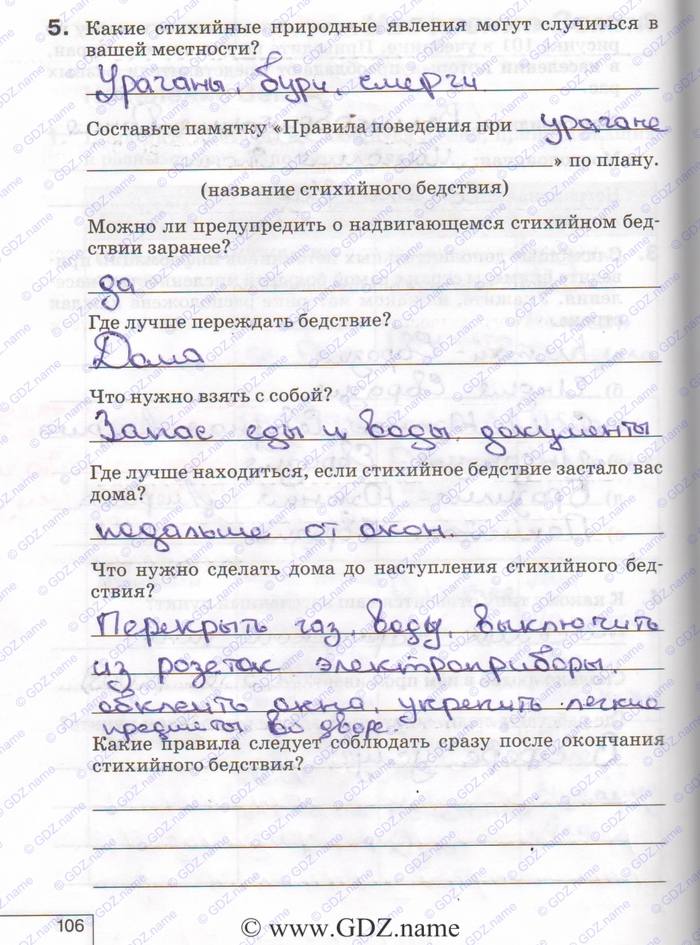 5. Какие стихийные природные явления могут случиться в
вашей местности?
Ураганы, бури, смерчи
Составьте памятку «Правила поведения при урагане
» по плану.
(название стихийного бедствия)
Можно ли предупредить о надвигающемся стихийном бед-
ствии заранее?
да
Где лучше переждать бедствие?
Дома
Что нужно взять с собой?
Запас еды и воды, документы
Где лучше находиться, если стихийное бедствие застало вас
дома?
подальше от окон.
Что нужно сделать дома до наступления стихийного бед-
ствия?
Перекрыть газ, воду, выключить
из розеток электроприборы,
обклеить окна, укрепить легкие
предметы во дворе.
Какие правила следует соблюдать сразу после окончания
стихийного бедствия?
106
© www.GDZ.name